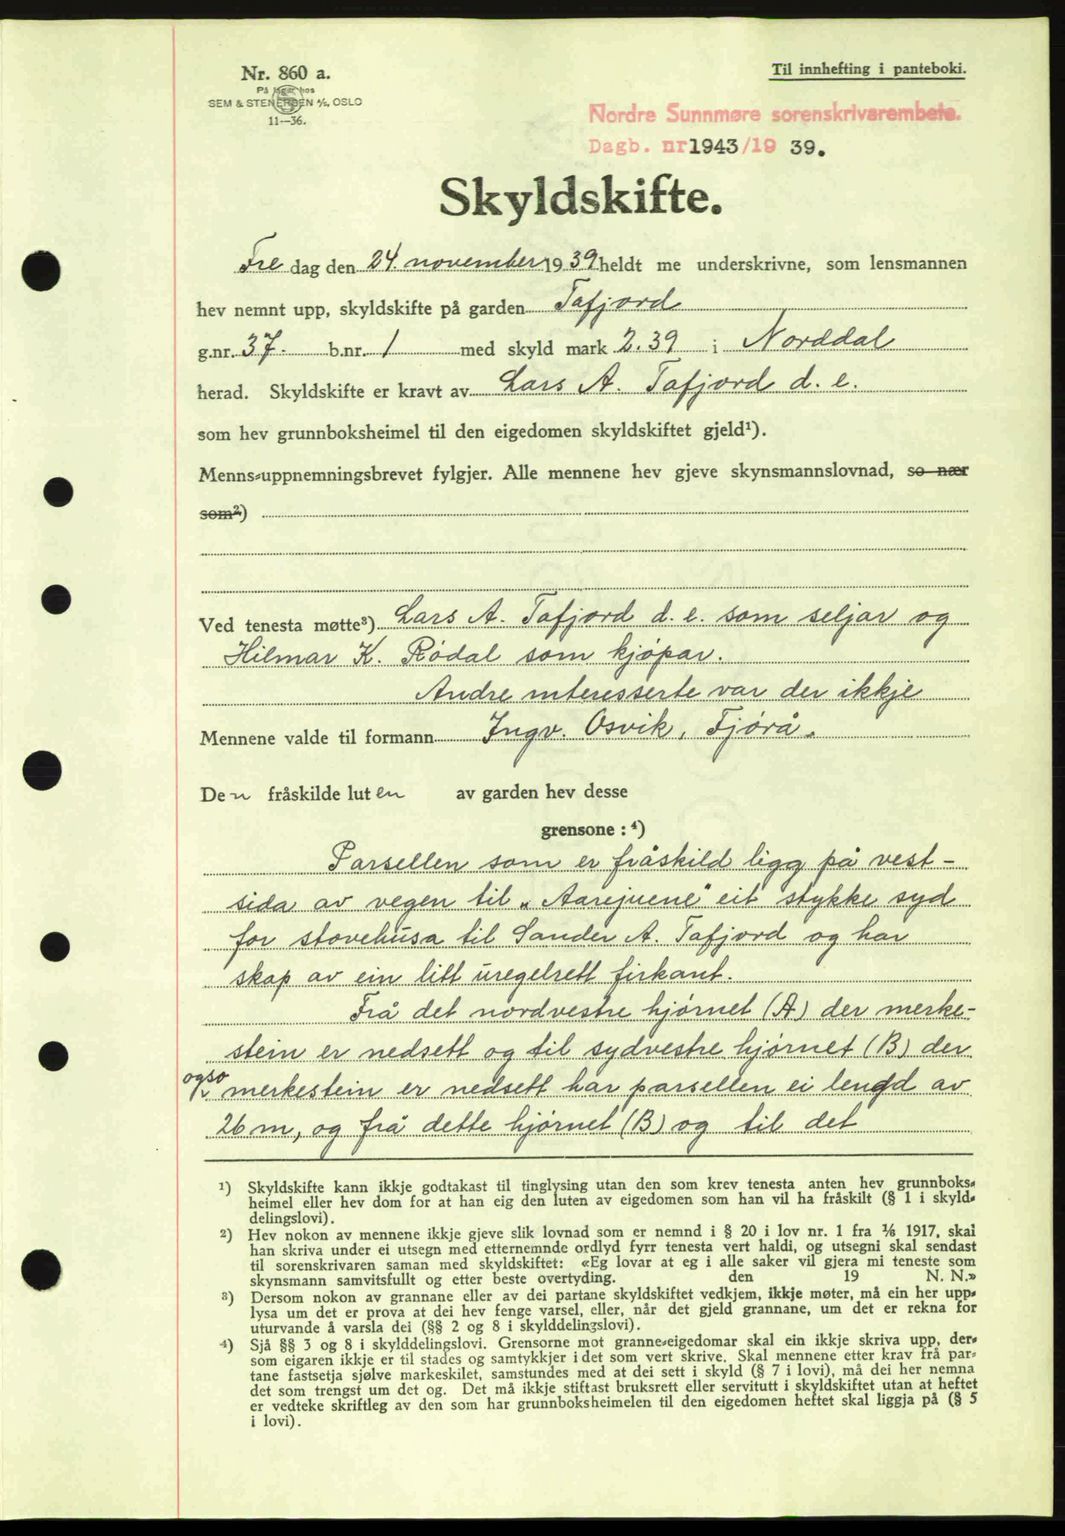 Nr. 860 a.
På lager hos
SEM & STENERSEN A/S, OSLO
11—36.
Til innhefting i panteboki.
Nordre Sunnmøre sorenskrivarembete.
Dagb. nr 1943/19 39.
Skyldskifte.
Fre dag den 24. november 19 39 heldt me underskrivne, som lensmannen
hev nemnt upp, skyldskifte på garden Tafjord
g.nr. 37. b.nr. 1 med skyld mark 2.39 i Norddal
herad. Skyldskifte er kravt av Lars A. Tafjord d. e.
som hev grunnboksheimel til den eigedomen skyldskiftet gjeld¹).
Menns-uppnemningsbrevet fylgjer. Alle mennene hev gjeve skynsmannslovnad, so nær
som²)
Ved tenesta møtte³) Lars A. Tafjord d. e. som seljar og
Hilmar K. Rødal som kjøpar.
Andre interesserte var der ikkje
Mennene valde til formann Ingv. Osvik, Fjørå.
De n fråskilde lut en av garden hev desse
grensone : ⁴)
Parsellen som er fråskild ligg på vest-
sida av vegen til „Aarejuene" eit stykke syd
for stovehusa til Sander A. Tafjord og har
skap av ein litt uregelrett firkant.
Frå det nordvestre hjørnet (A) der merke-
stein er nedsett og til sydvestre hjørnet (B) der
også merkestein er nedsett har parsellen ei lengd av
26 m, og frå dette hjørnet (B) og til det
¹) Skyldskifte kann ikkje godtakast til tinglysing utan den som krev tenesta anten hev grunnboks-
heimel eller hev dom for at han eig den luten av eigedomen som han vil ha fråskilt (§ 1 i skyld-
delingslovi).
²) Hev nokon av mennene ikkje gjeve slik lovnad som er nemnd i § 20 i lov nr. 1 fra ¹/₆ 1917, skal
han skriva under ei utsegn med etternemnde ordlyd fyrr tenesta vert haldi, og utsegni skal sendast
til sorenskrivaren saman med skyldskiftet: «Eg lovar at eg i alle saker vil gjera mi teneste som
skynsmann samvitsfullt og etter beste overtyding. den 19 N. N.»
³) Dersom nokon av grannane eller av dei partane skyldskiftet vedkjem, ikkje møter, må ein her upp-
lysa um det er prova at dei hev fenge varsel, eller, når det gjeld grannane, um det er rekna for
uturvande å varsla dei (§§ 2 og 8 i skylddelingslovi).
⁴) Sjå §§ 3 og 8 i skylddelingslovi. Grensorne mot granne-eigedomar skal ein ikkje skriva upp, der-
som eigaren ikkje er til stades og samtykkjer i det som vert skrive. Skal mennene etter krav frå par-
tane fastsetja sjølve markeskilet, samstundes med at dei sett i skyld (§ 7 i lovi), må dei her nemna
det som trengst um det og. Det må ikkje stiftast bruksrett eller servitutt i skyldskiftet utan at heftet
er vedteke skriftleg av den som har grunnboksheimelen til den eigedomen heftet skal liggja på (§ 5
i lovi).